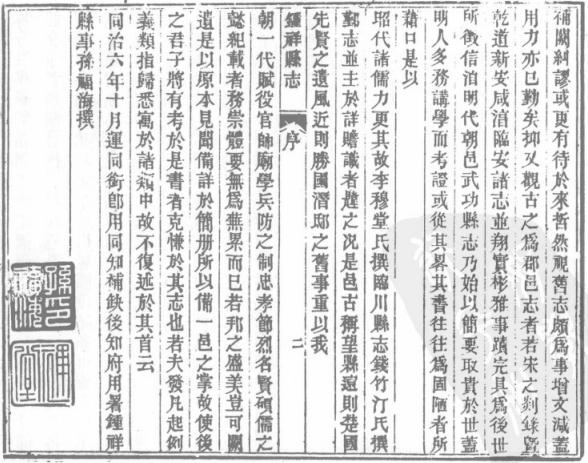 補闕糾謬或更有待於來哲然視舊志頗爲事增文減蓋
用力亦已勤矣抑又觀古之爲郡邑志者若宋之剡錄曁
乾道新安咸淳臨安諸志並翔實彬雅事蹟完具爲後世
所徵信洎明代朝邑武功縣志乃始以簡要取貴於世蓋
明人多務講學而考證或從其畧其書往往爲固陋者所
藉口是以
昭代諸儒力更其故李穆堂氏撰臨川縣志錢竹汀氏撰
鄞志並主於詳贍識者韙之况是邑古稱望縣遠則楚國
先賢之遺風近則勝國潛邸之舊事重以我
鍾祥縣志
序
二
朝一代賦役官師廟學兵防之制忠孝節烈名賢碩儒之
懿紀載者務崇體要無爲蕪累而已若邦之盛美豈可闕
遺是以原本見聞備詳於簡册所以備一邑之掌故使後
之君子將有考於是書者克慊於其志也若夫發凡起例
義類指歸悉寓於諸類中故不復述於其首云
同治六年十月運同銜卽用同知補缺後知府用署鍾祥
縣事孫福海撰
孫印福海